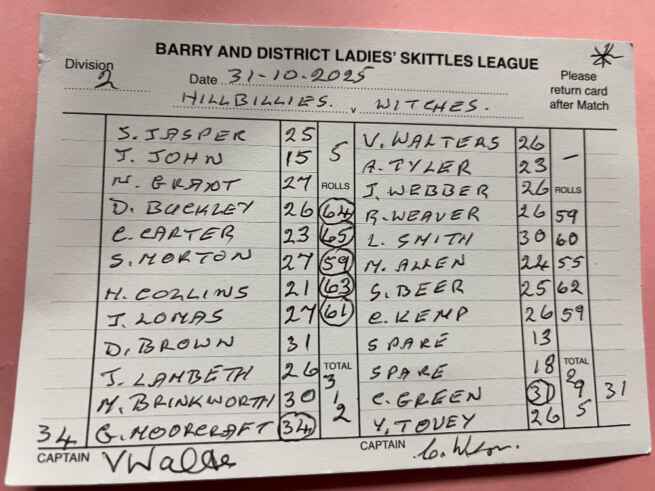 BARRY AND DISTRICT LADIES' SKITTLES LEAGUE
Division 2
Date 31-10-2025
Please return card after Match
HILLBILLIES. v WITCHES.
S. JASPER 25 5 V. WALTERS 26 —
J. JOHN 15 A. TYLER 23
N. GRANT 27 ROLLS J. WEBBER 26 ROLLS
D. BUCKLEY 26 64 R. WEAVER 26 59
C. CARTER 23 65 L. SMITH 30 60
S. MORTON 27 59 M. ALLEN 24 55
H. COLLINS 21 63 S. BEER 25 62
J. LOMAS 27 61 C. KEMP 26 59
D. BROWN 31 SPARE 13
J. LAMBETH 26 TOTAL 312 SPARE 18 TOTAL 295
M. BRINKWORTH 30 C. GREEN 31 31
34 G. MOORCRAFT 34 Y. TOVEY 26
CAPTAIN CAPTAIN